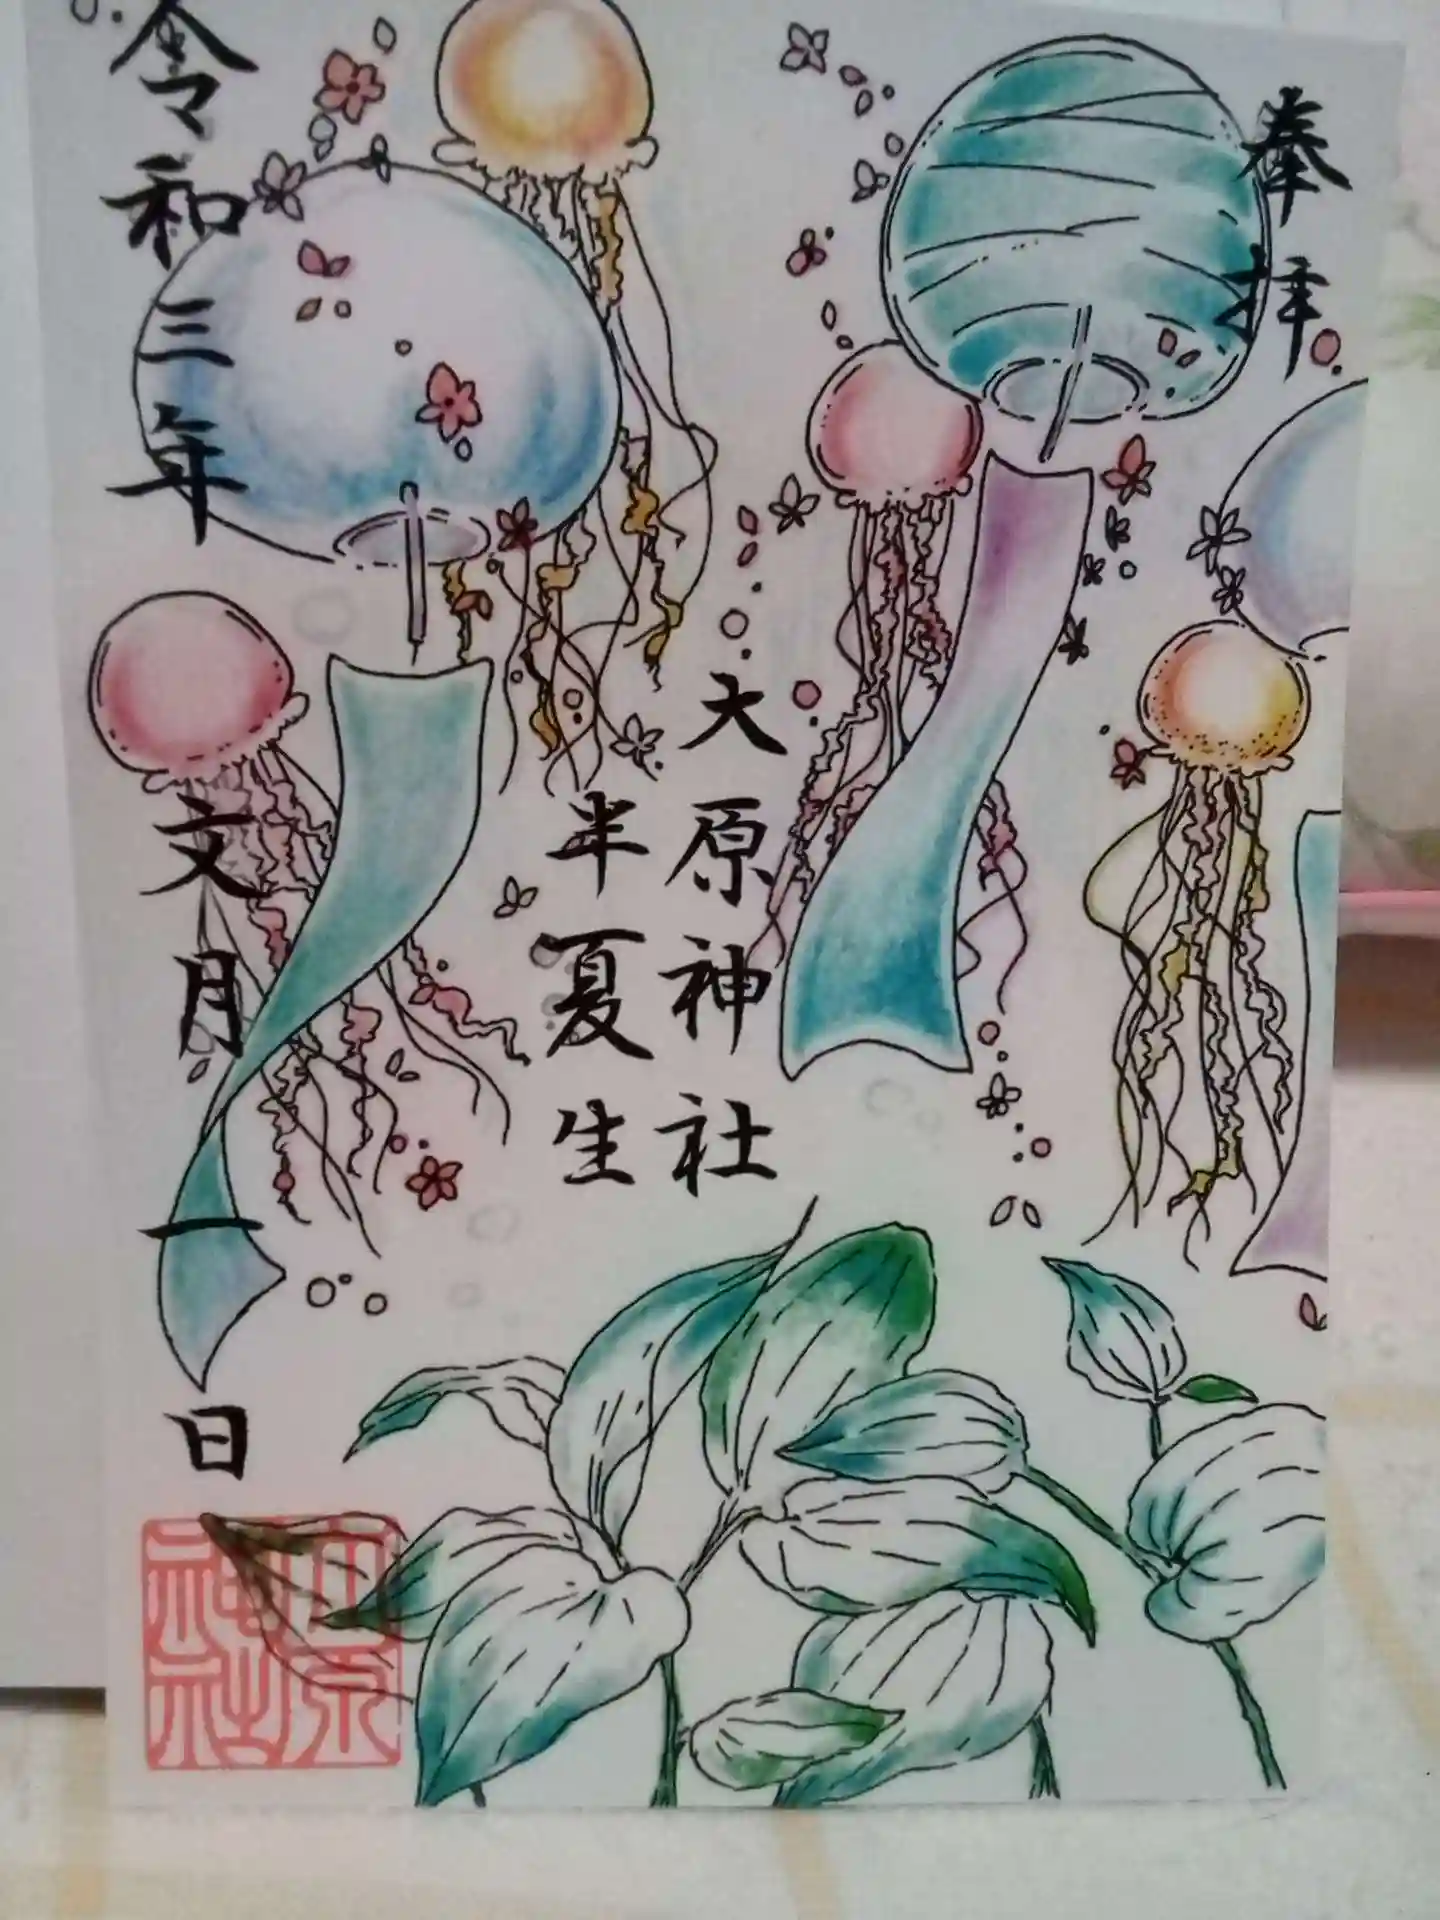 奉拝
大原神社
半夏生
令和三年
文月一日
大原神社